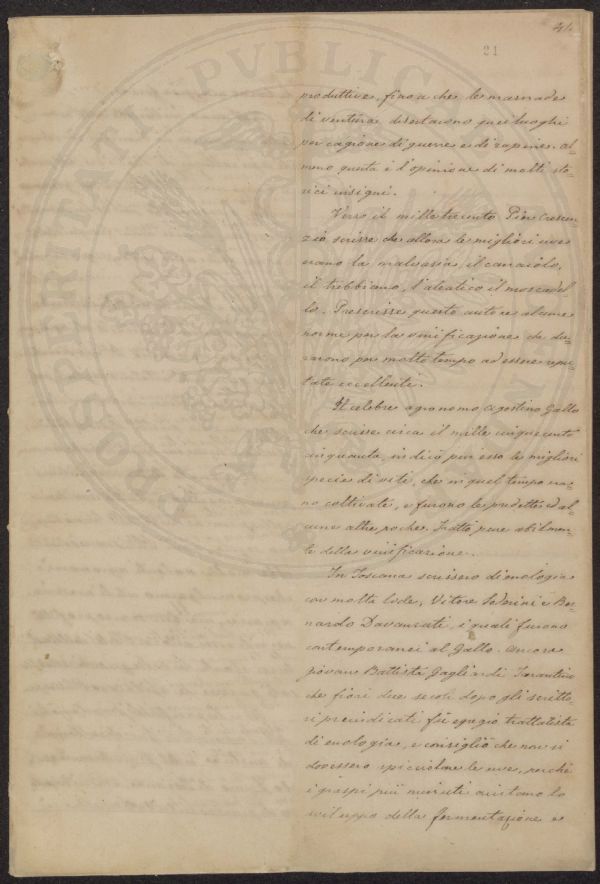 21
produttive, fino a che le masnade
di ventura disertarono quei luoghi
per cagione di guerre e di rapine. Al=
meno questa è l'opinione di molti sto=
rici insigni.
Verso il mille trecento Pier Crescen=
zio scrisse che allora le migliori uve
erano la malvasia, il canaiolo,
il trebbiano, l'aleatico il moscadel
lo. Prescrisse questo autore alcune
norme per la vinificazione che du=
rarono per molto tempo ad essere repu=
tate eccellenti.
Il celebre agronomo Agostino Gallo
che scrisse circa il mille cinquecento
cinquanta, indicò pur esso le migliori
specie di viti, che in quel tempo era=
no coltivate, e furono le predette ed al=
cune altre poche. Trattò pure abilmen=
te della vinificazione.
In Toscana scrissero di enologia
con molta lode, Vitore Soderini e Ber=
nardo Davanzati, i quali furono
contemporanei al Gallo. Ancora
Giovan Battista Gagliardi Tarantino
che fiorì due secoli dopo gli scritto=
ri preindicati fu egregio trattatista
di enologia, e consigliò che non si
dovessero spicciolare le uve, perchè
i graspi più minuti aiutano lo
sviluppo della fermentazione e
PROSPERITATI PVBLICAE